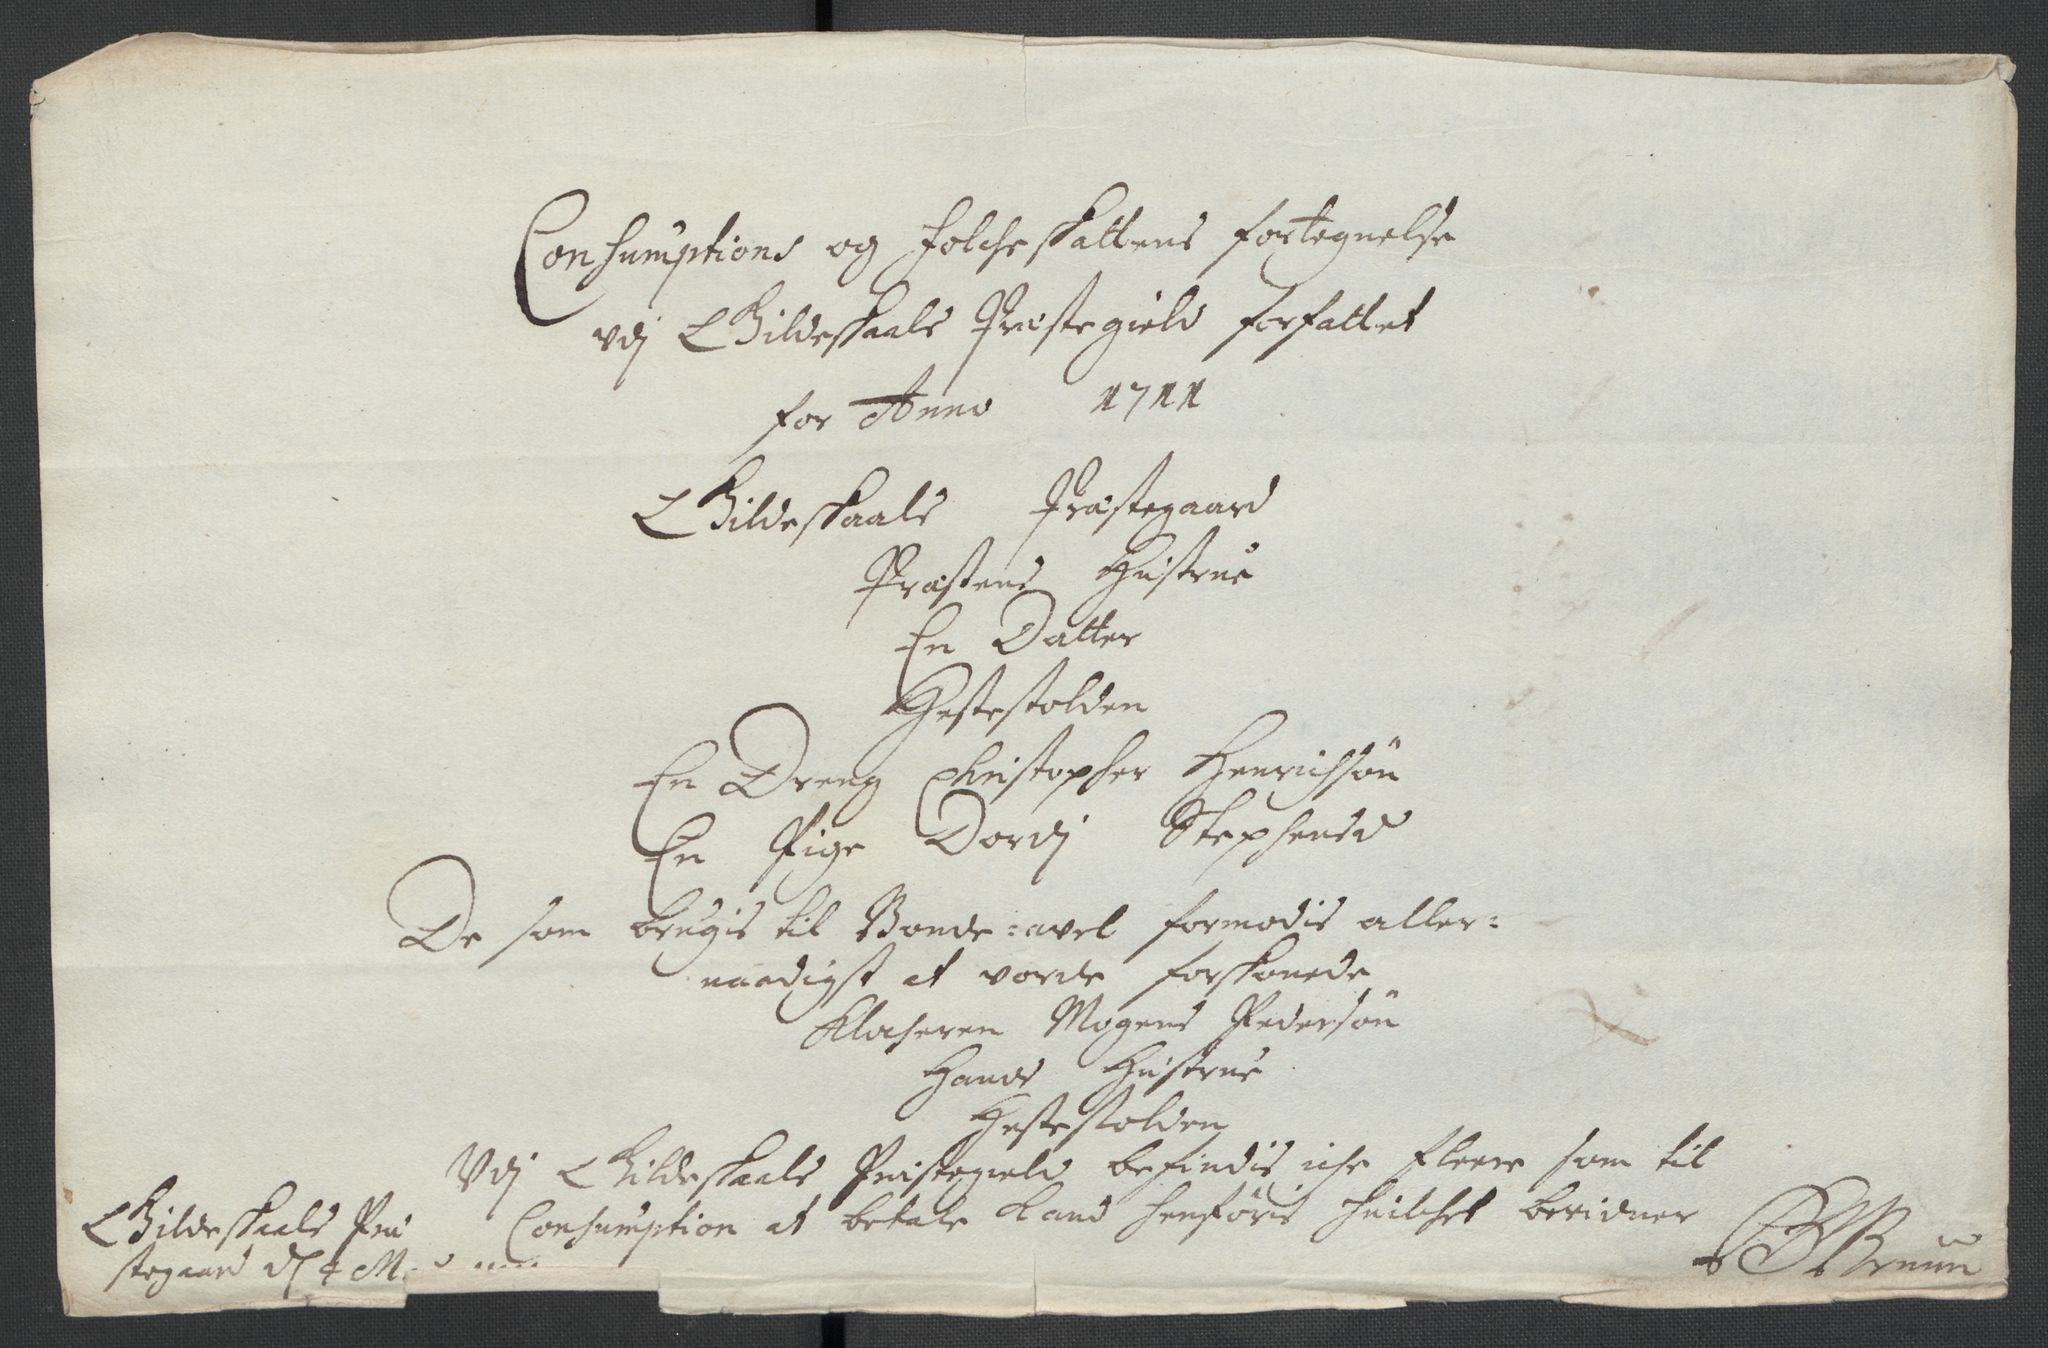 Consumptions og folcheskattens fortegnelse
vdj Gildeskaals Præstegield forfattet
for Anno 1711
Gildeskaals Præstegaard
Præstens Hustrue
En Datter
Hestestolden
En Dreng Christopher Henrichsøn
En Pige Dordj Stephensd
De som brugis til Bonde-avel formodis aller-
naadigst at vorde forskonede
Klocheren Mogens Pedersøn
Hands Hustrue
Hestestolden
Vdj Gildeskaals Præstegield befindis iche fleere som til
Consumption at betale kand henføris huilchet bevidner
Gildeskaals Præ
stegaard d 4 M
Bruun